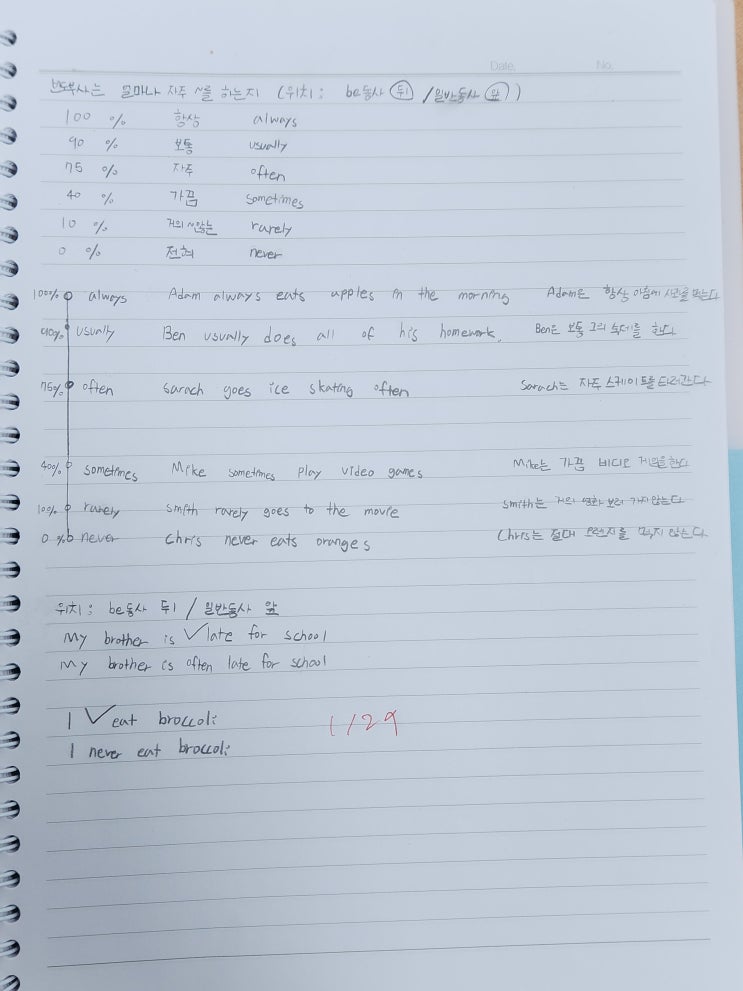 Date. No.
빈도부사는 얼마나 자주 ~를 하는지 (위치: be동사 뒤 / 일반동사 앞)
100 % 항상 always
90 % 보통 usually
75 % 자주 often
40 % 가끔 sometimes
10 % 거의 ~않는 rarely
0 % 전혀 never
100% always Adam always eats apples in the morning Adam은 항상 아침에 사과를 먹는다
90% usually Ben usually does all of his homework. Ben은 보통 그의 숙제를 한다
75% often Sarach goes ice skating often Sarach는 자주 스케이트를 타러간다
40% sometimes Mike sometimes play video games Mike는 가끔 비디오 게임을한다
100% rarely smith rarely goes to the movie smith는 거의 영화 보러 가지않는다
0 % never Chris never eats oranges Chris는 절대 오렌지를 먹지 않는다
위치: be동사 뒤 / 일반동사 앞
My brother is ✓ late for school
My brother is often late for school
I ✓ eat broccoli
1/29
I never eat broccoli